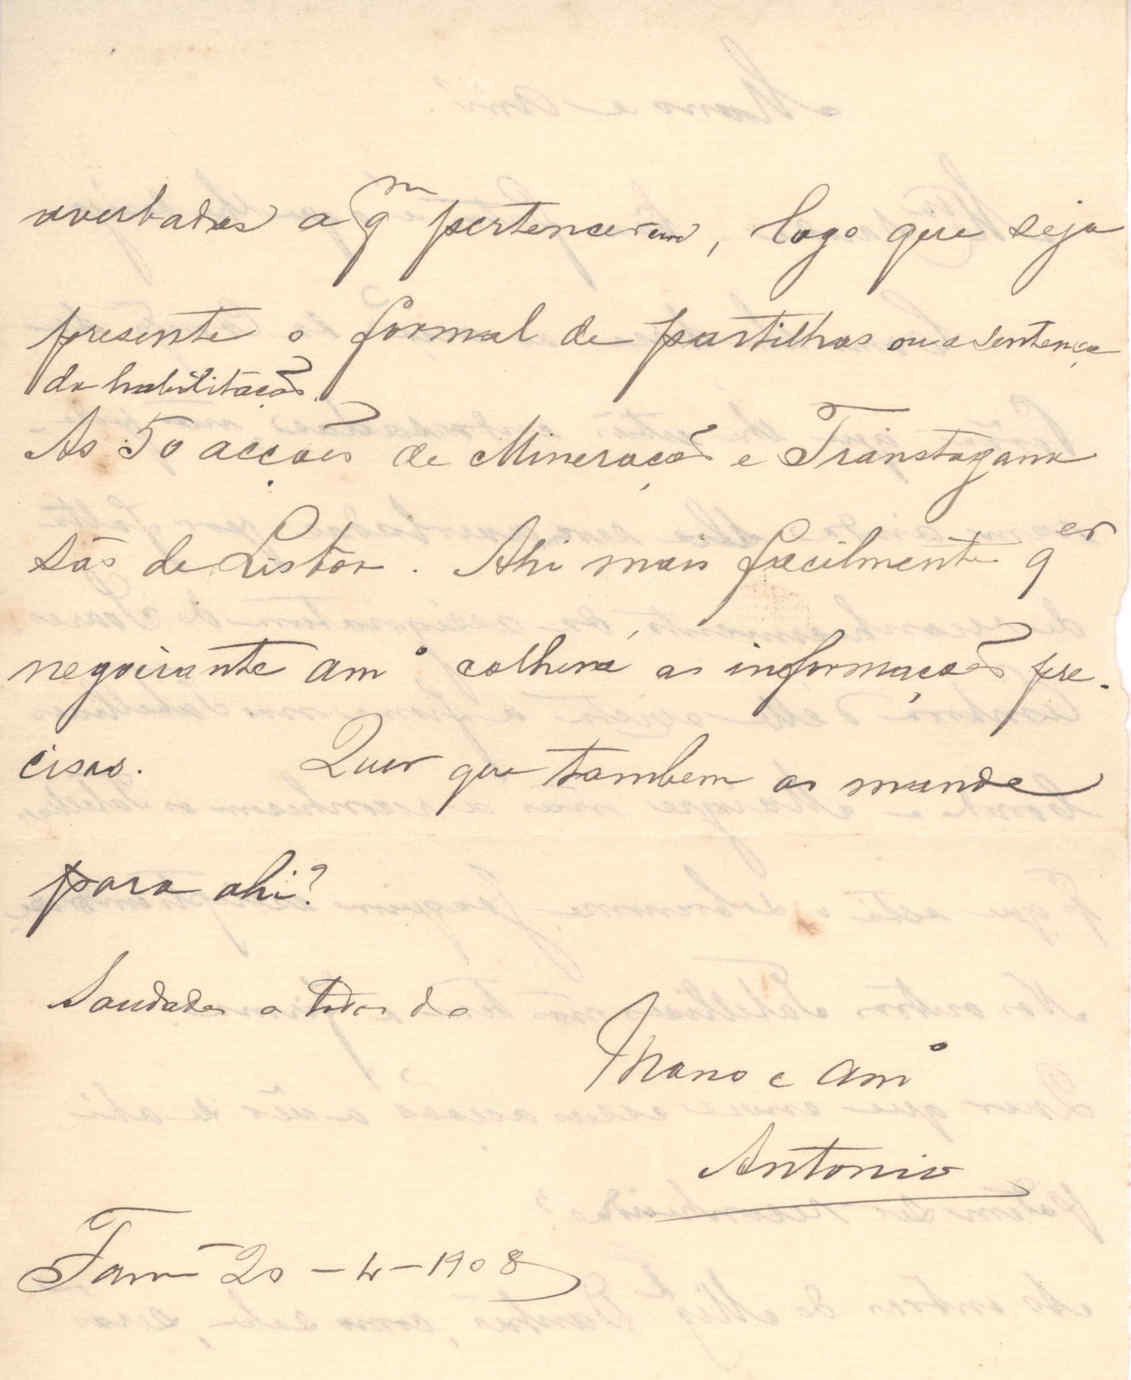 averbadas a qm pertencerem, logo que seja
presente o formal de partilhas ou a sentença
de habilitação.
As 50 acções de Mineração e Transtagana
são de Lisboa. Ahi mais facilmente qer
negociante amo colherá as informações pre-
cisas. Quer que tambem as mande
para ahi?
Saudades a todos do
Mano e amo
Antonio
Fam 20-4-1908